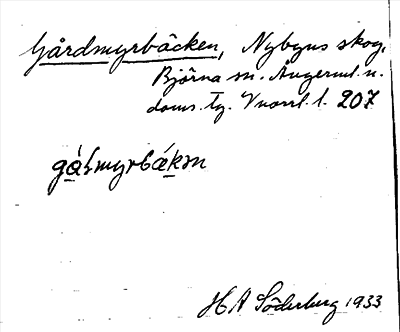 Gårdmyrbäcken, Nybyns skog,
Björna sn. Ångerml. n.
doms. tg. Vnorrl. l. 207
H A Söderberg 1933